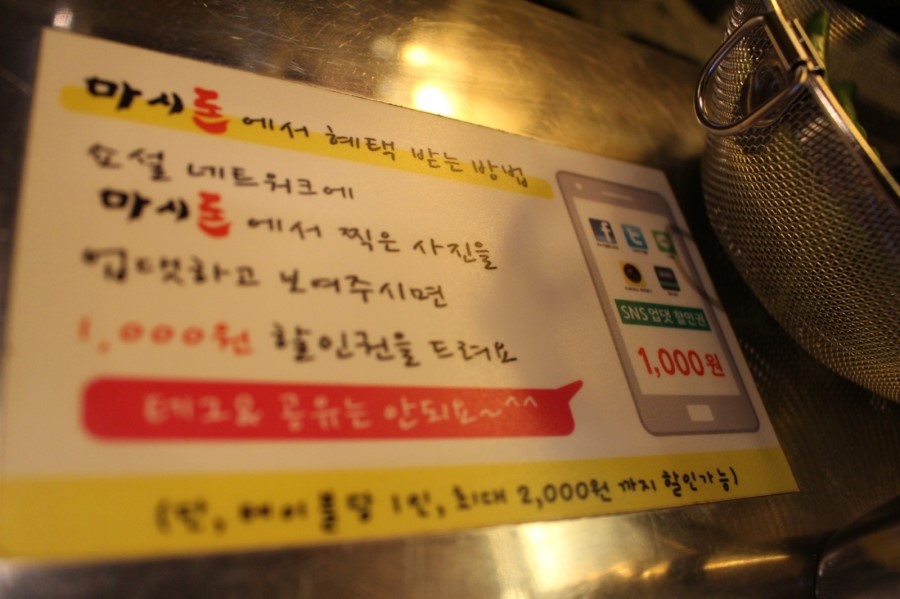 마시돈에서 혜택 받는 방법
소셜 네트워크에
마시돈에서 찍은 사진을
업댓하고 보여주시면
1,000원 할인권을 드려요
테그&공유는 안되요~^^
(단, 테이블당 1인, 최대 2,000원 까지 할인가능)
SNS 업댓 할인권
1,000원